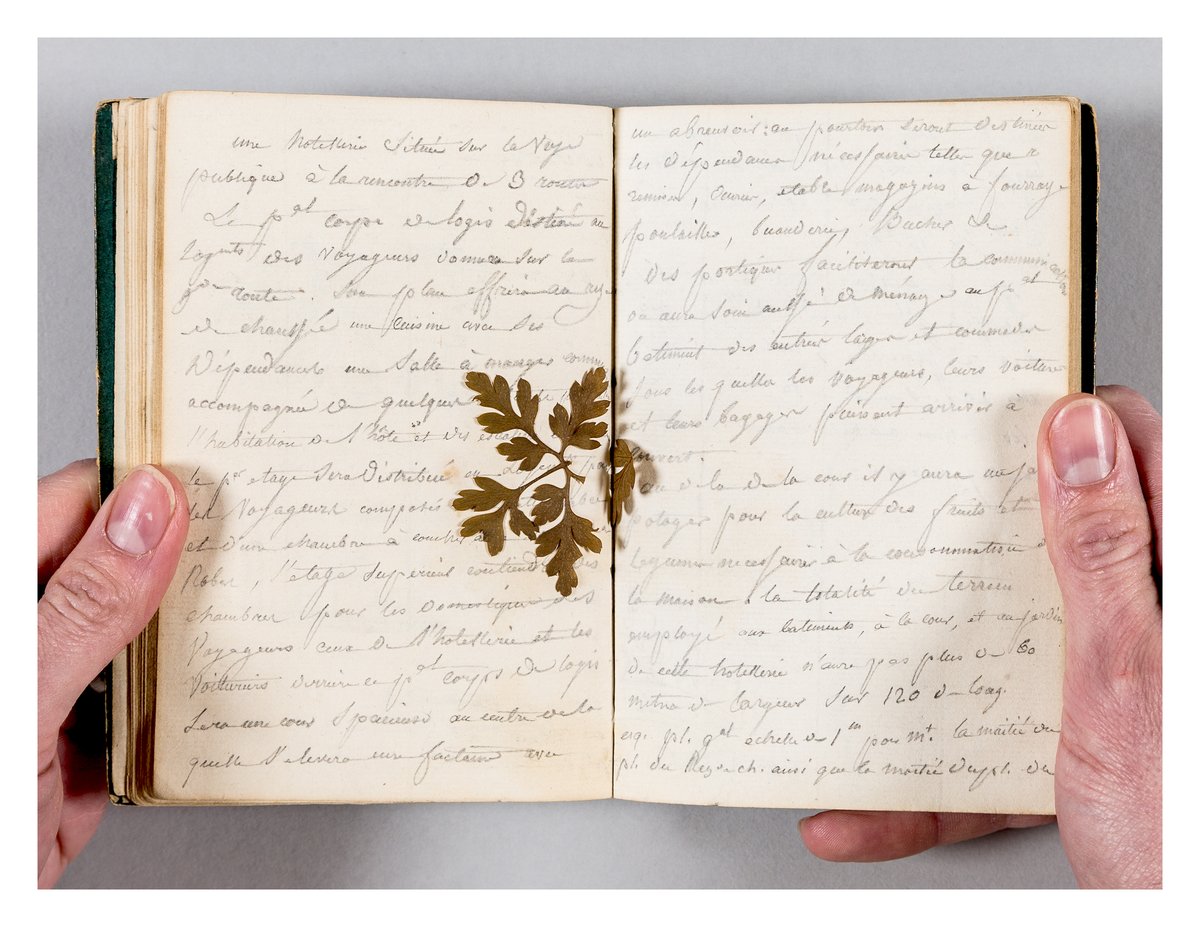 une hotellerie Située sur la Voye
publique à la rencontre de 3 routes
Le p.al corps de logis destiné au
logent des Voyageurs donnera sur la
g.de route. Son plan offrira au rez
de chaussée une cuisine avec ses
Dépendances une Salle à manger
accompagnée de quelques
l'habitation de l'hôte et des
le p.er etage Sera Distribué en
des Voyageurs composés
et d'une chambre à coucher
Robes, l'étage Supérieur contiendra des
chambres pour les Domestiques des
Voyageurs ceux de l'hotellerie et les
Voituriers derrière ce p.al corps de logis
Sera une cour Spacieuse au centre de la
quelle S'elevera une fontaine avec
un abreuvoir : au pourtour seront destinées
les dépendances nécessaires telles que
remises, écuries, etable magazins à fourrage
poulailler, buanderie, Bucher &c
Des portiques faciliteront la communication
on aura soin aussi de ménager au p.al
batiment des entrées larges et commodes
sous les quelles les voyageurs, leurs voitures
et leurs bagages puissent arriver à
couvert.
au de la de la cour il y aura un
potager pour la culture des fruits et
légumes nécessaires à la consommation de
la maison. la totalité du terrein
employé aux batiments, à la cour, et au jardin
de cette hotellerie n'aura pas plus de 60
metres de largeur sur 120 de long.
esq. pl. g.al echelle de 1m pour m.t la moitié du
pl. du Rez de ch. ainsi que la moitié du pl. du